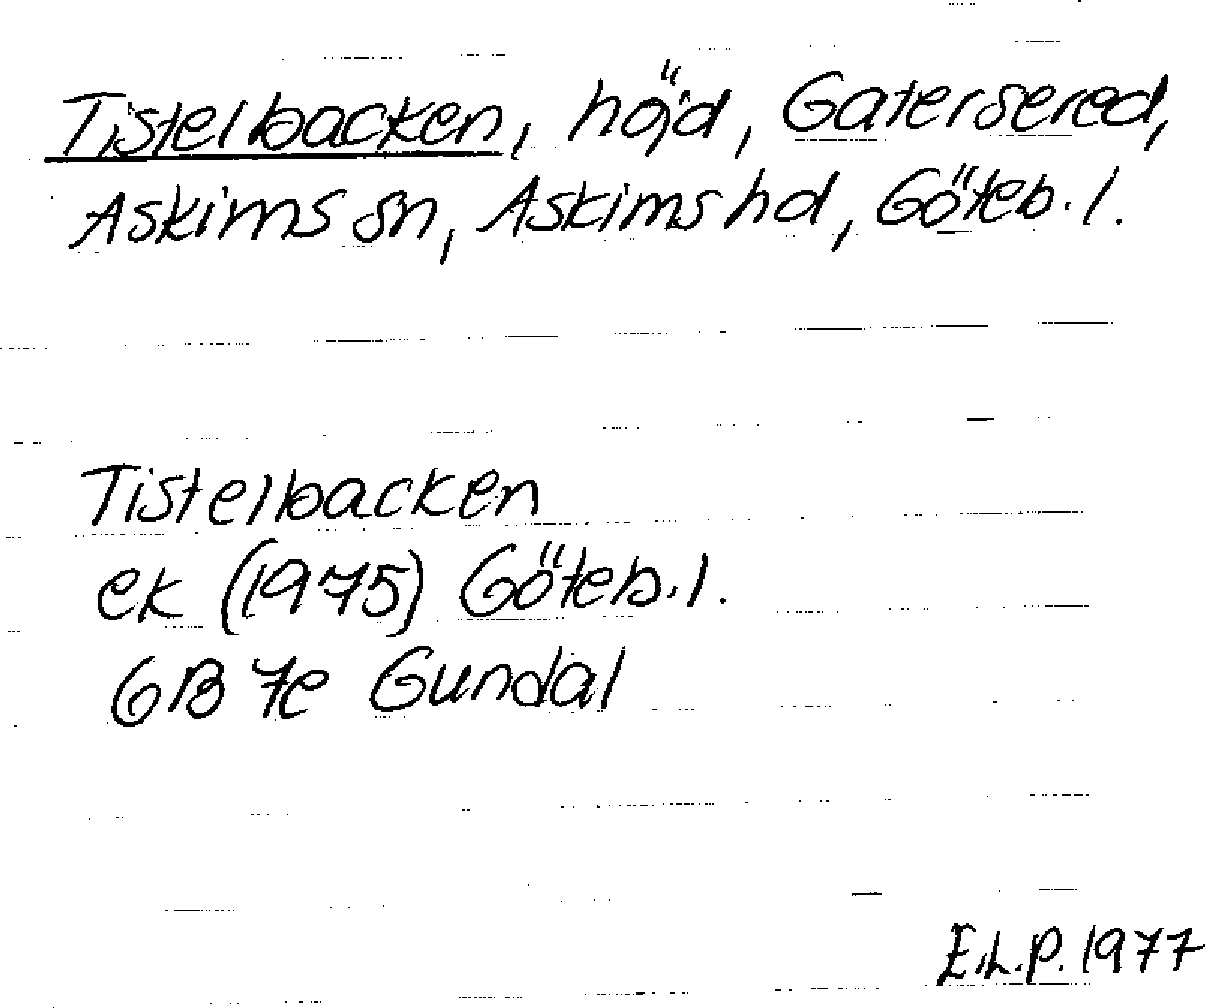 Tistelbacken, höjd, Gatersered,
Askims sn, Askims hd, Göteb. l.
Tistelbacken
ek (1975) Göteb. l.
6B 7e Gundal
E.L.P. 1977